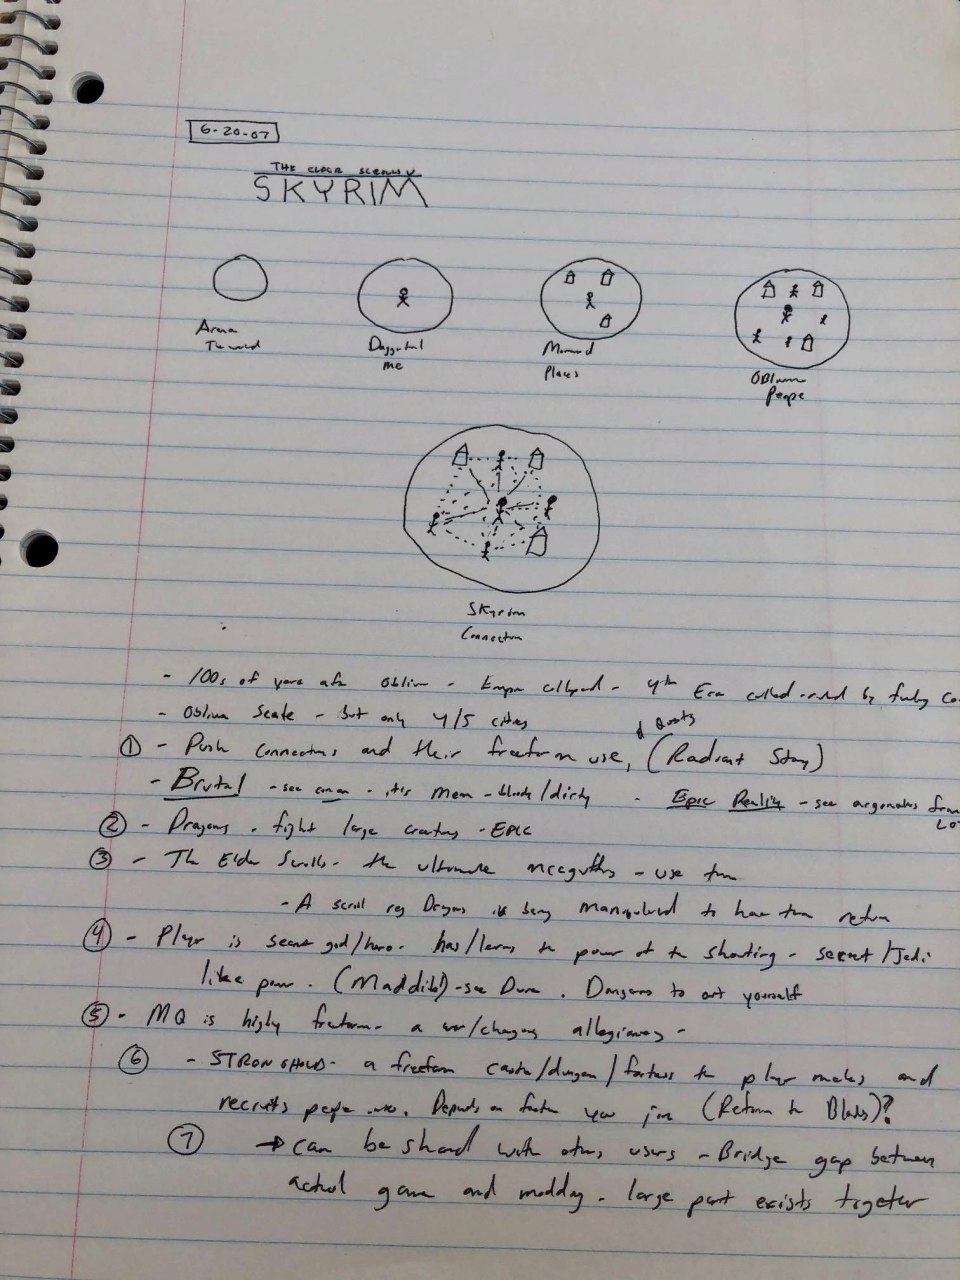 6-20-07
THE ELDER SCROLLS V
SKYRIM
Arena
The world
Daggerfall
me
Morrowind
Places
Oblivion
People
Skyrim
Connection
- 100s of years after Oblivion - Empire collapsed - 4th Era called - ruled by
- Oblivion Scale - but only 4/5 cities
& Quests
① - Push connections and their freeform use, (Radiant Story)
- Brutal - see conan - it's Mean - bloody/dirty - Epic Reality - see argonaths from
LOT
② - Dragons - fight large creatures - EPIC
③ - The Elder Scrolls - the ultimate mcguffins - use them
- A scroll Dragons is being manipulated to have them return
④ - Player is secret god/hero. has/learns the power of the shouting - secret/Jedi
like power. (Maddib) - see Dune. Dangerous to out yourself
⑤ - MQ is highly freeform - a war/changing allegiances -
⑥ - STRONGHOLDS - a freeform castle/dungeon/fortress the player makes and
recruits people into. Depends on faction you join (Return to Blades)?
⑦ → can be shared with other users - Bridge gap between
actual game and modding. large part exists together